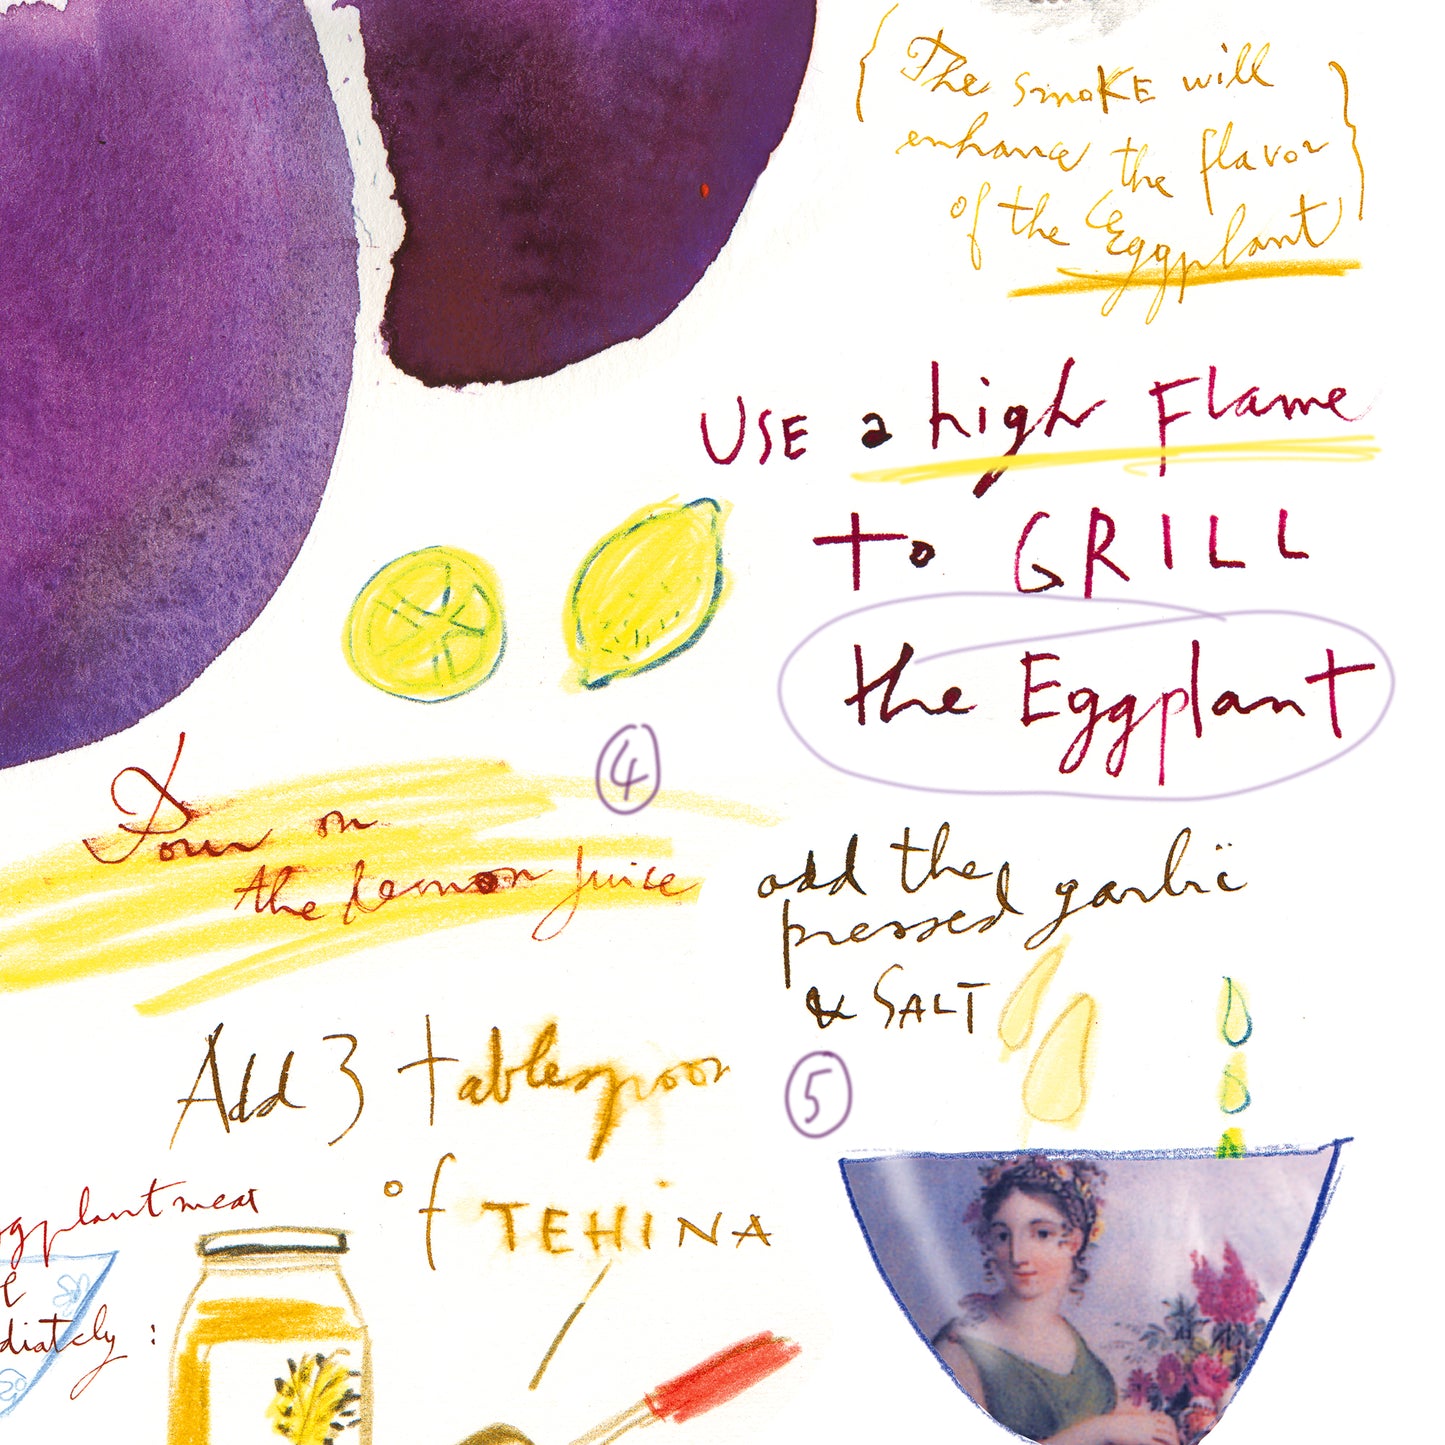 { The smoKE will
enhance the flavor
of the Eggplant }
USE a high Flame
to GRILL
the Eggplant
4
Pour on
the lemon juice
add the
pressed garlic
& SALT
5
Add 3 tablespoon
of TEHiNA
ggplant meat
diately :